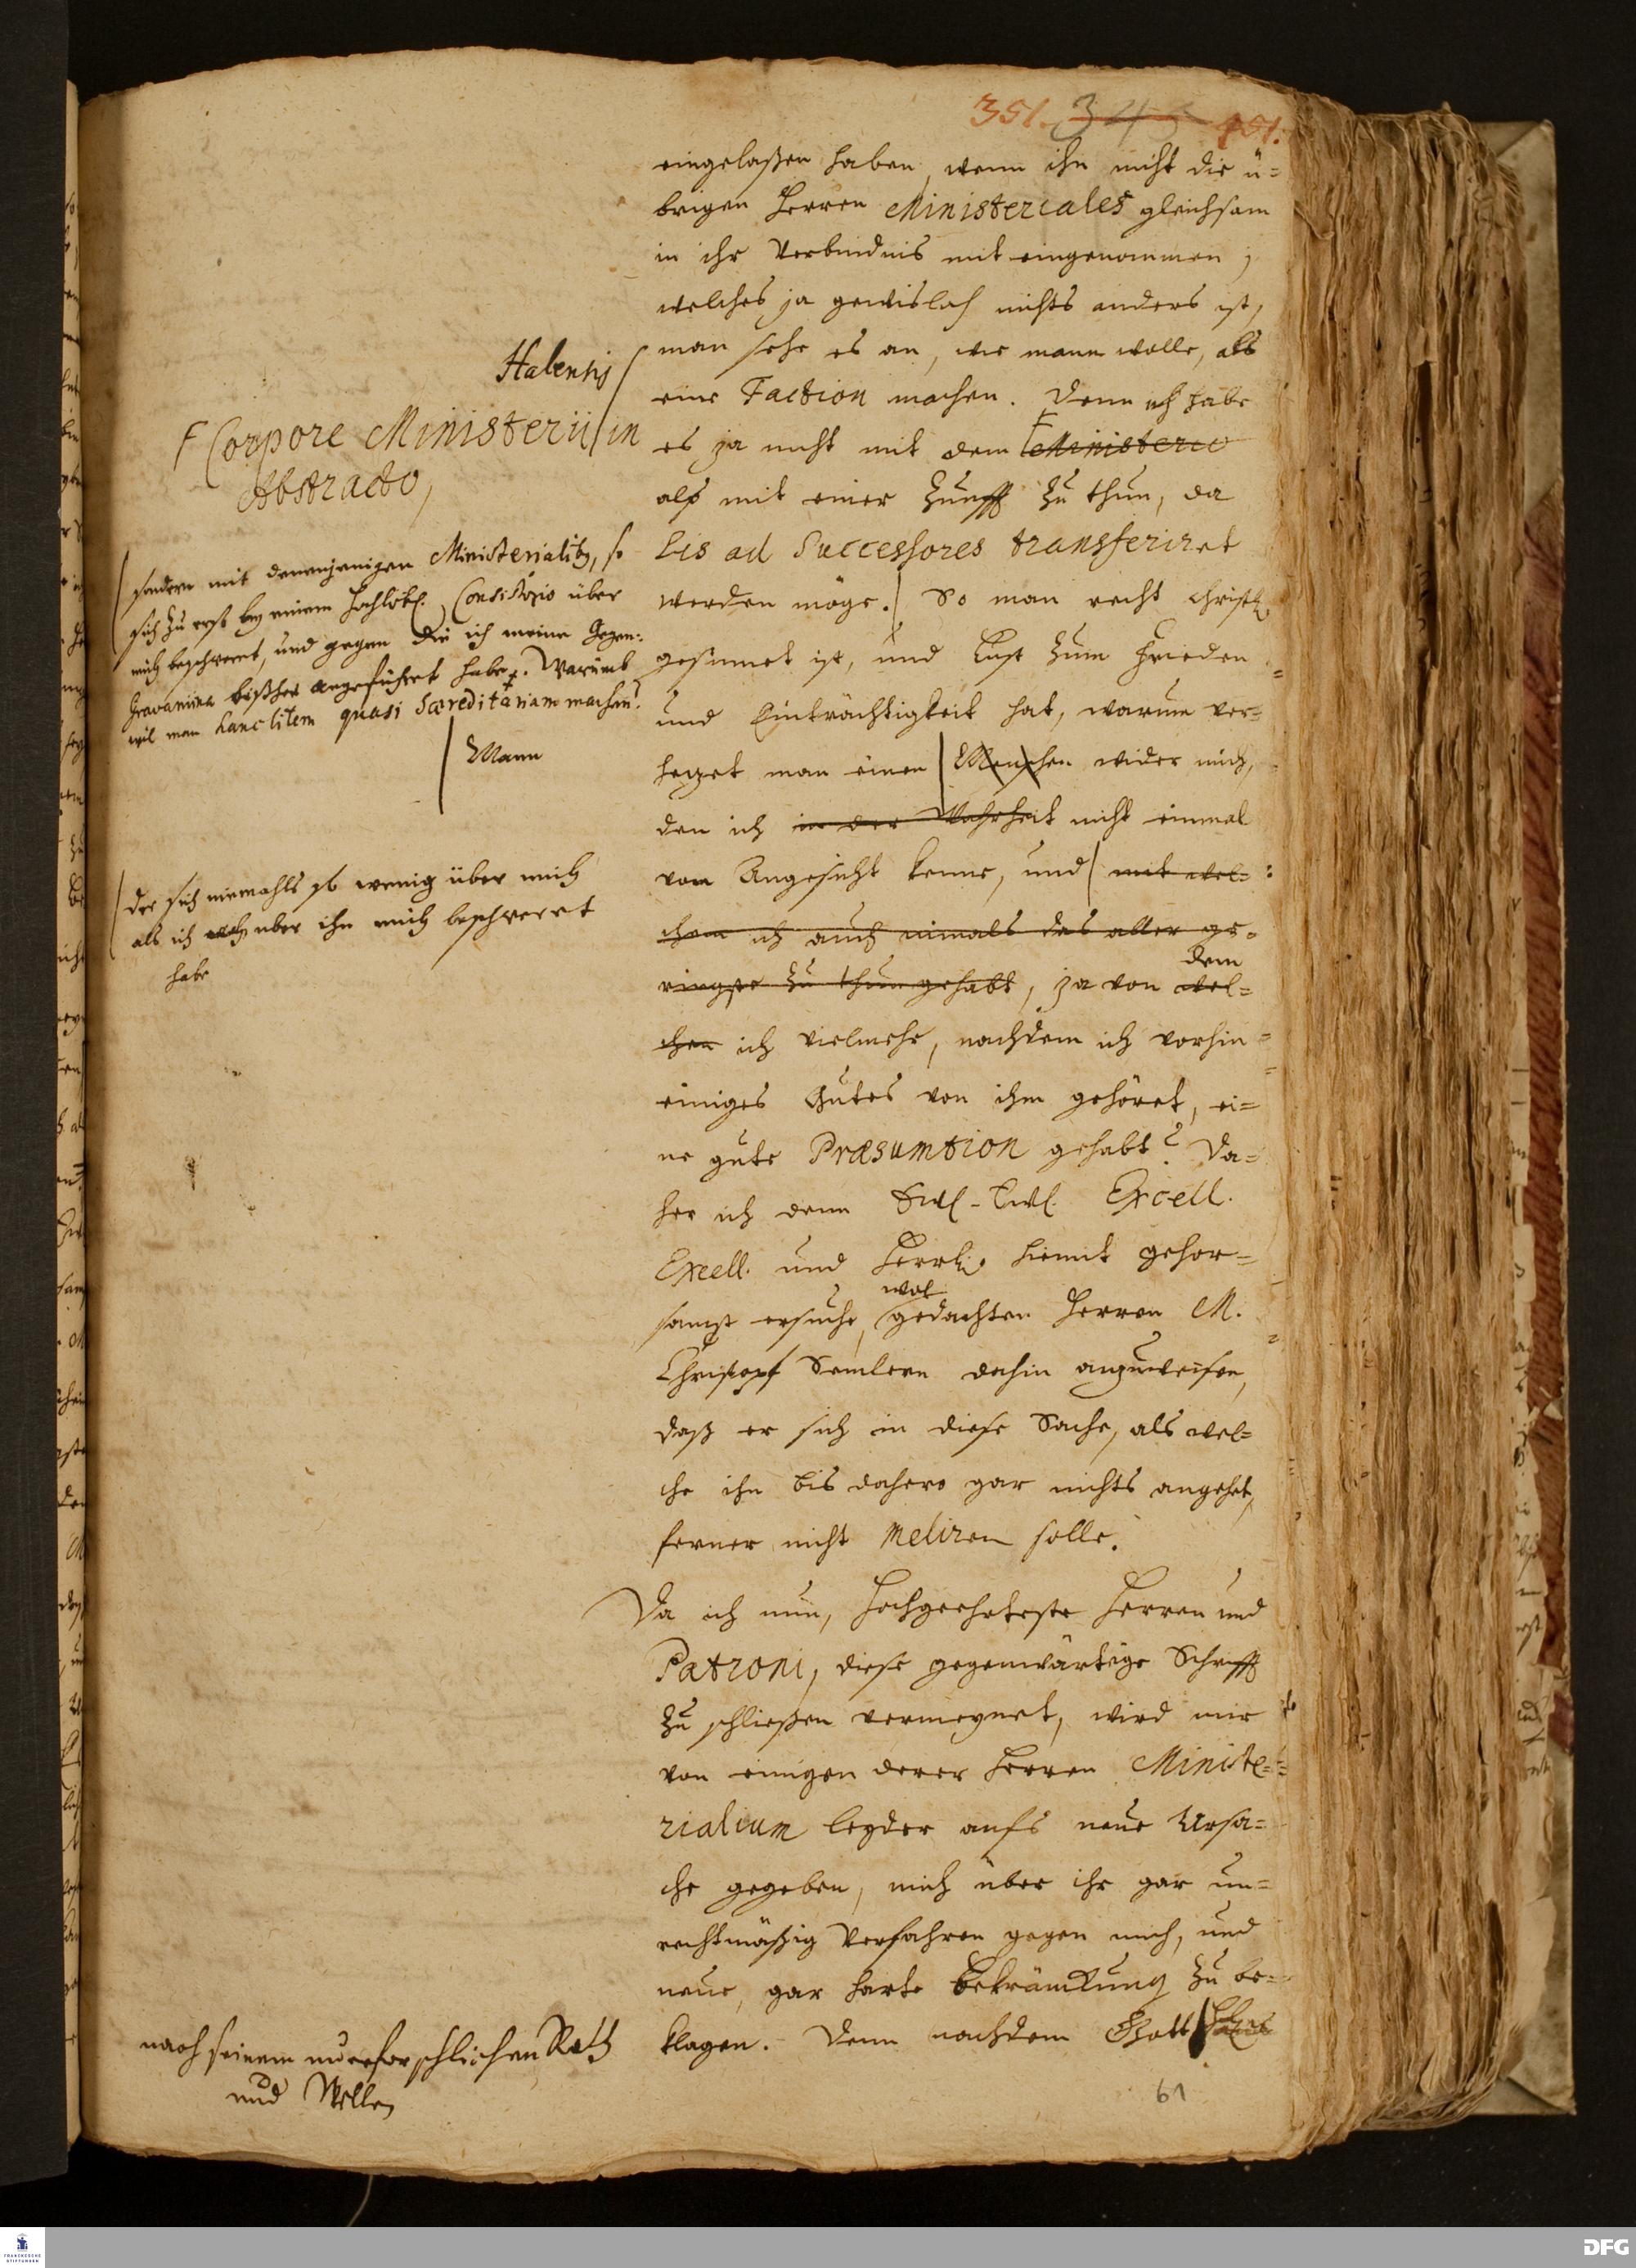 351. 345 151.
eingelaßen haben, wenn ihn nicht die ü=
brigen Herren Ministeriales gleichsam
in ihr Verbindnis mit eingenommen;
welches ja gewislich nichts anders ist,
man sehe es an, wie mann wolle, als
eine Faction machen. Denn ich habe
es ja nicht mit dem Ministerio
alß mit einer Zunfft zu thun, da
Lis ad Successores transferiret
werden möge. So man recht christl.
gesinnet ist, und Lust zum Frieden
und Einträchtigkeit hat, warum ver=
hezet man einen Menschen wider mich,
den ich in der Wahrheit nicht einmal
von Angesicht kenne, und mit wel=
chem ich auch nimals das aller ge=
ringste zu thun gehabt, ja von wel=
dem
chen ich vielmehr, nachdem ich vorhin
einiges Gutes von ihm gehöret, ei=
ne gute Præsumtion gehabt? Da=
her ich denn Excell.
Excell. und Herrl. hiemit gehor=
samst ersuche, gedachten Herren M.
wol
Christoph Semlern dahin anzuweisen,
daß er sich in diese Sache, als wel=
che ihn bis dahero gar nichts angehet,
ferner nicht meliren solle.
Da ich nun, Hochgeehrteste Herren und
Patroni, diese gegenwärtige Schrifft
zu schließen vermeynet, wird mir
von einigen derer Herren Ministe=
rialium leyder aufs neue Ursa=
che gegeben, mich über ihr gar un=
rechtmäßig Verfahren gegen mich, und
neue, gar harte Bekränckung zu be=
klagen. Denn nachdem Gott
61
Halensis
Corpore Ministerii in
Abstracto,
sondern mit denenjenigen Ministerialib9, so
sich zu erst bey einem Hochlöbl. Consistorio über
mich beschweret, und gegen die ich meine Gegen=
Gravamina bißher angeführet habe. Warumb
wil man hanc litem quasi hæreditariam machen?
Mann
der sich niemahls so wenig über mich
als ich über ihn mich beschweret
habe
nach seinem unerforschlichen Rath
und Willen
FRANCKESCHE
STIFTUNGEN
DFG